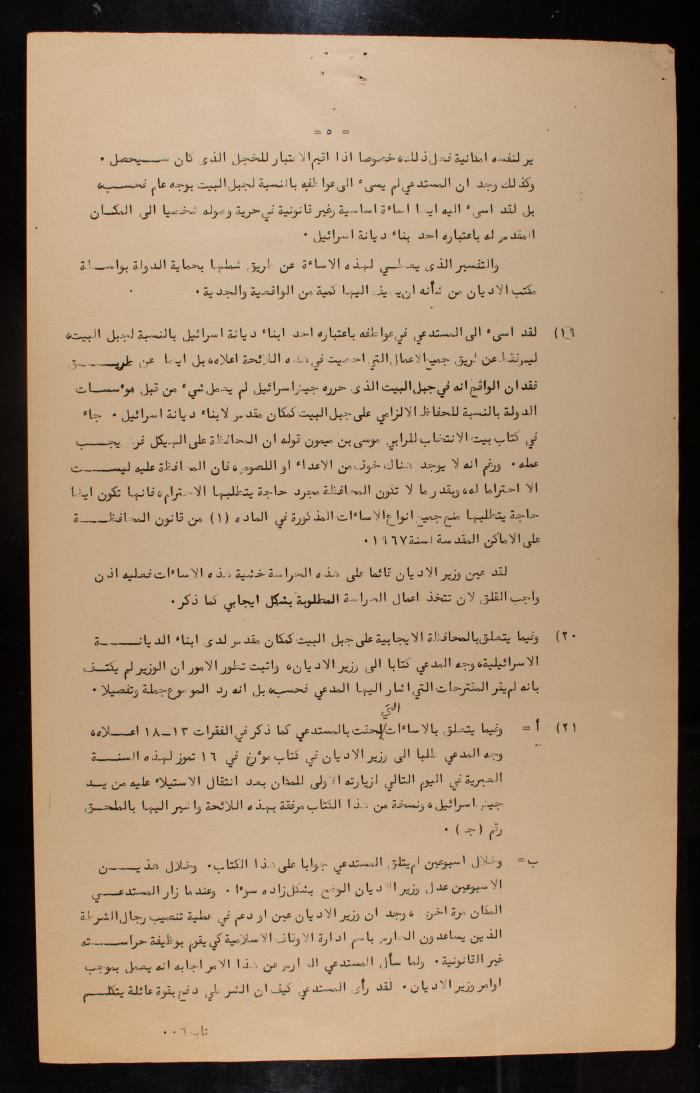 = ٥ =
ير لنفسه امكانية فعل ذلك، خصوصا اذا اقيم الاعتبار للخجل الذي كان سيحصل ٠
وكذلك وجد ان المستدعي لم يسىء الى عواطفه بالنسبة لجبل البيت بوجه عام فحسب،
بل لقد اسىء اليه ايضا اساءة اساسية وغير قانونية في حرية وصوله شخصيا الى المكان
المقدس له باعتباره احد بناء ديانة اسرائيل ٠
والتفسير الذي يعطى لهذه الاساءة عن طريق شملها بحماية الدولة بواسطة
مكتب الاديان من شأنه ان يضيف اليها كمية من الواقعية والجدية ٠
١٩) لقد اسىء الى المستدعي في عواطفه باعتباره احد ابناء ديانة اسرائيل بالنسبة لجبل البيت،
ليس فقط عن طريق جميع الاعمال التي احصيت في هذه اللائحة اعلاه، بل ايضا عن طريق
فقدان الواقع انه في جبل البيت الذي حرره جيش اسرائيل لم يعمل شيء من قبل مؤسسات
الدولة بالنسبة للحفاظ الالزامي على جبل البيت كمكان مقدس لابناء ديانة اسرائيل ٠ جاء
في كتاب بيت الانتخاب للرابي موسى بن ميمون قوله ان المحافظة على الهيكل فرض يجب
عمله ٠ ورغم انه لا يوجد هناك خوف من الاعداء او اللصوص، فان المحافظة عليه ليست
الا احتراما له، وبقدر ما لا تكون المحافظة مجرد حاجة يتطلبها الاحترام، فانها تكون ايضا
حاجة يتطلبها منع جميع انواع الاساءات المذكورة في الماده (١) من قانون المحافظة
على الاماكن المقدسة لسنة ١٩٦٧ ٠
لقد عين وزير الاديان قائما على هذه الحراسة خشية هذه الاساءات فعليه اذن
واجب القلق لان تتخذ اعمال الحراسة المطلوبة بشكل ايجابي كما ذكر ٠
٢٠) وفيما يتعلق بالمحافظة الايجابية على جبل البيت كمكان مقدس لدى ابناء الديانة
الاسرائيلية، وجه المدعي كتابا الى وزير الاديان، واثبت تطور الامور ان الوزير لم يكتف
بانه لم يقر المقترحات التي اشار اليها المدعي فحسب، بل انه رد الموضوع جملة وتفصيلا ٠
٢١) أ = وفيما يتعلق بالاساءات التي لحقت بالمستدعي كما ذكر في الفقرات ١٣-١٨ اعلاه،
وجه المدعي طلبا الى وزير الاديان في كتاب مؤرخ في ١٦ تموز لهذه السنة
العبرية في اليوم التالي لزيارته الاولى للمكان بعد انتقال الاستيلاء عليه من يد
جيش اسرائيل، ونسخة من هذا الكتاب مرفقة بهذه اللائحة واشير اليها بالملحق
رقم (جـ) ٠
ب = وخلال اسبوعين لم يتلق المستدعي جوابا على هذا الكتاب ٠ وخلال هذين
الاسبوعين عدل وزير الاديان الوضع بشكل زاده سوءا ٠ وعندما زار المستدعي
المكان مرة اخرى، وجد ان وزير الاديان عين او دعم في عملية تنصيب رجال الشرطة
الذين يساعدون الحارس باسم ادارة الاوقاف الاسلامية كي يقوم بوظيفة حراسته
غير القانونية ٠ ولما سأل المستدعي الحارس عن هذا الامر اجابه انه يعمل بموجب
اوامر وزير الاديان ٠ لقد رأى المستدعي كيف ان الشرطي دفع بقوة عائلة يتكلم
تابع ٦ ٠٠